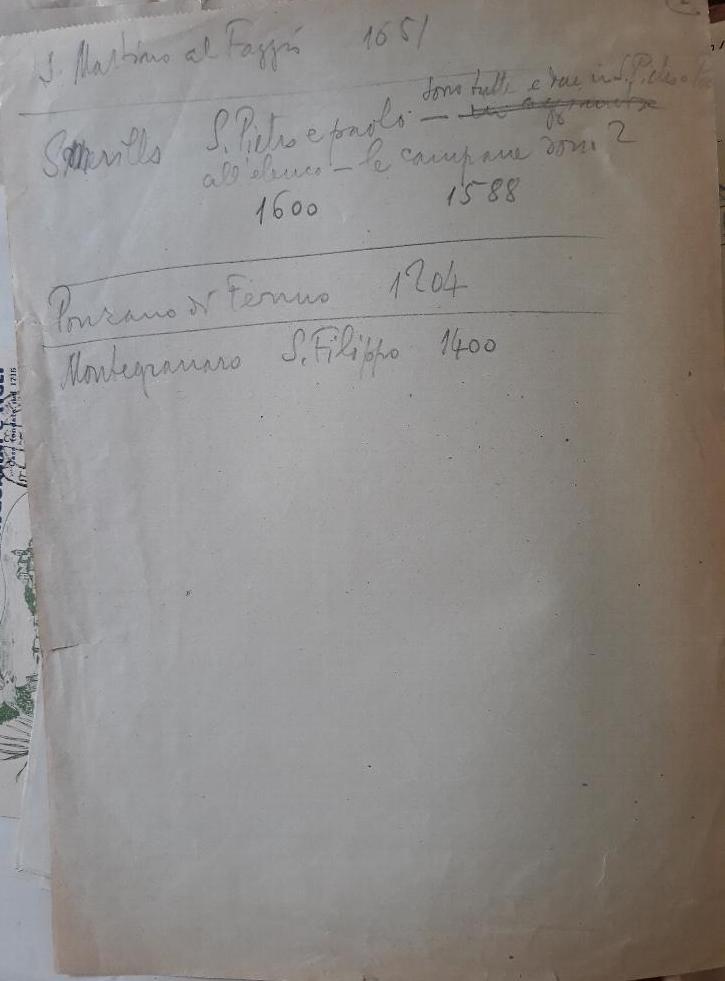 S. Martino al Faggio 1651
sono tutte e due in S. Pietro e
Smerillo S. Pietro e paolo — da aggiungere
all'elenco – le campane sono 2
1600 1588
Ponzano di Fermo 1204
Montegranaro S. Filippo 1400